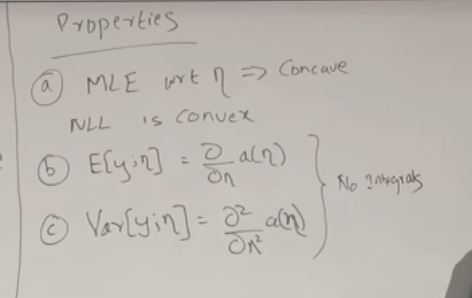 Properties
(a) MLE wrt η => Concave
NLL is convex
(b) E[y;η] = ∂/∂η a(η)
(c) Var[y;η] = ∂²/∂η² a(η)
No Integrals